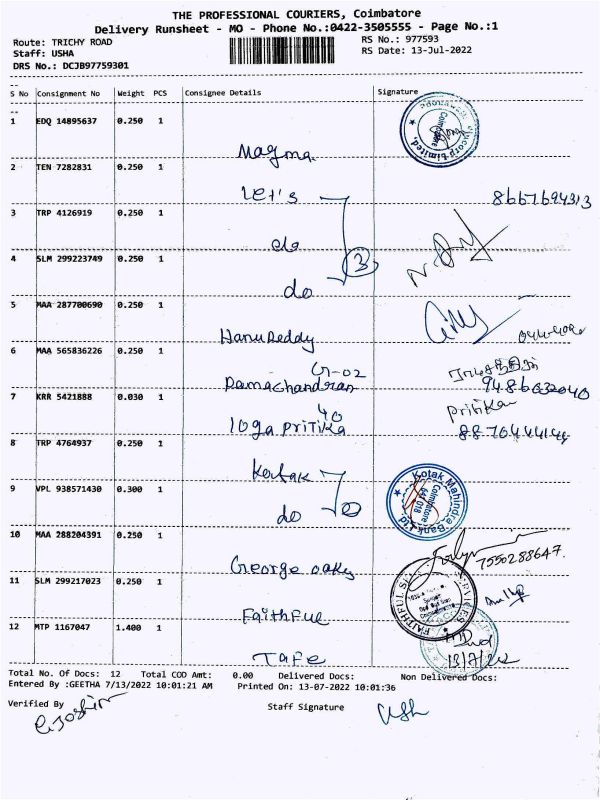 THE PROFESSIONAL COURIERS, Coimbatore
Delivery Runsheet - MO - Phone No.:0422-3505555 - Page No.:1
Route: TRICHY ROAD
RS No.: 977593
Staff: USHA
RS Date: 13-Jul-2022
DRS No.: DCJB97759301
S No Consignment No Weight PCS Consignee Details Signature
1 EDQ 14895637 0.250 1
Magma
2 TEN 7282831 0.250 1
Let's
8667694313
3 TRP 4126919 0.250 1
do
3
4 SLM 299223749 0.250 1
do
5 MAA 287700690 0.250 1
HanuReddy
6 MAA 565836226 0.250 1
G-02
Ramachandran
9486032040
7 KRR 5421888 0.030 1
Pritika
40
Ioga Pritika
8870444144
8 TRP 4764937 0.250 1
Kotak
Kotak Mahindra Bank Ltd.
Coimbatore
641 018
9 VPL 938571430 0.300 1
do
10 MAA 288204391 0.250 1
George oakes
7550288647.
11 SLM 299217023 0.250 1
Faithful
FAITHFUL SERVICES
12 MTP 1167047 1.400 1
Tafe
13/7/22
Total No. Of Docs: 12 Total COD Amt: 0.00 Delivered Docs: Non Delivered Docs:
Entered By :GEETHA 7/13/2022 10:01:21 AM Printed On: 13-07-2022 10:01:36
Verified By
Staff Signature
Ush